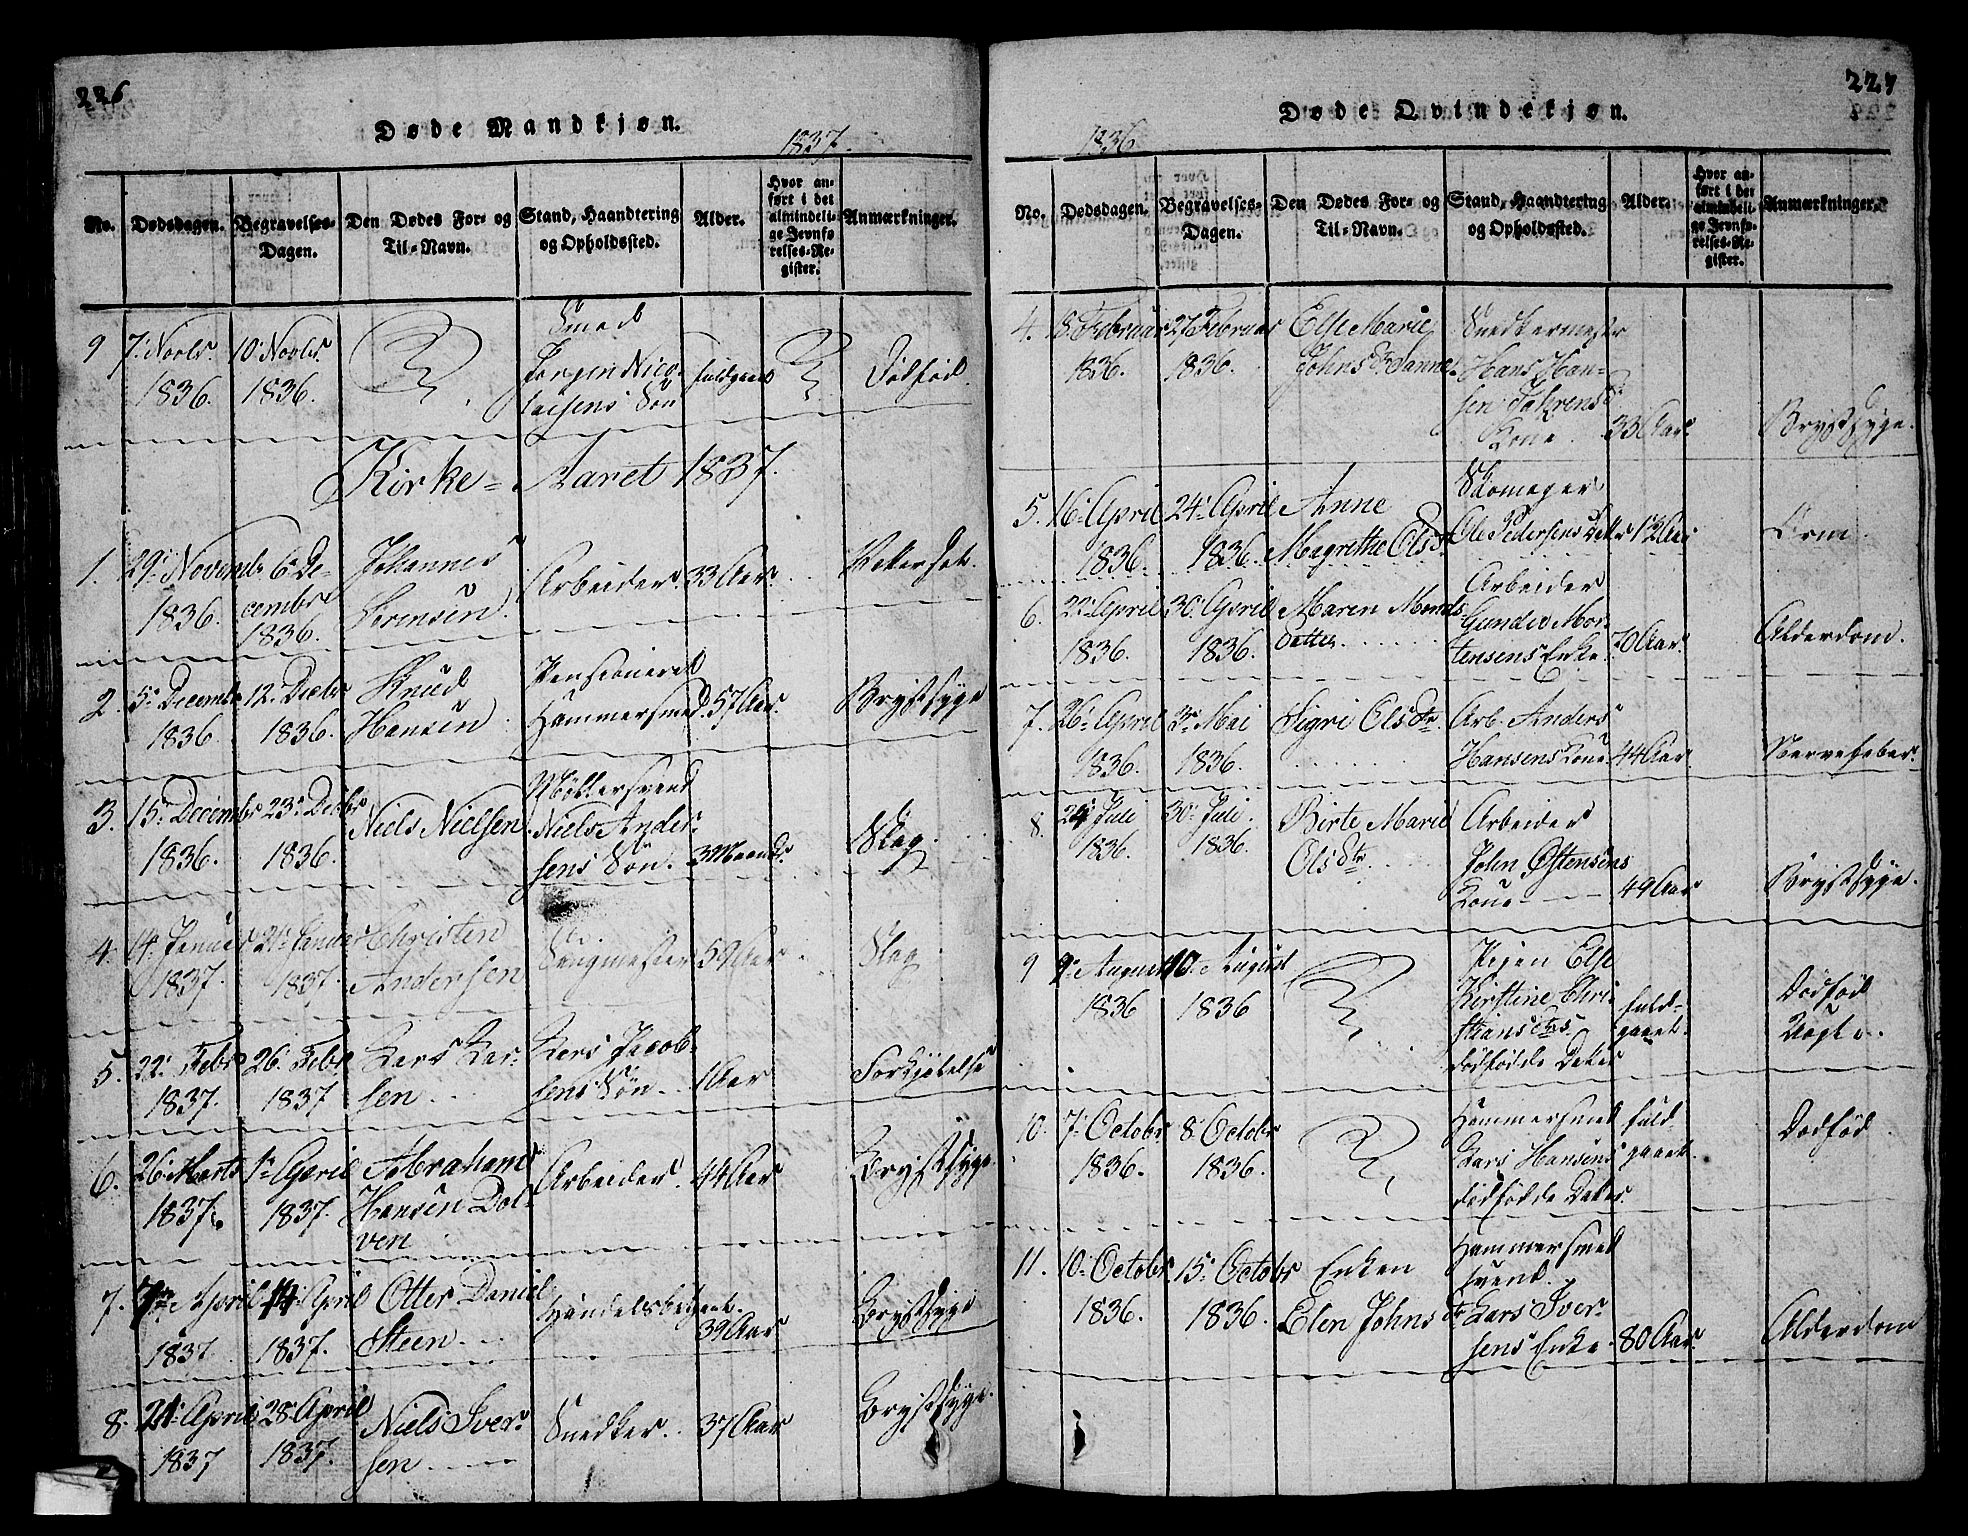 226
Døde Mandkjøn.
1837.
No.
Dødsdagen.
Begravelses-
Dagen.
Den Dødes For- og
Til-Navn.
Stand, Haandtering
og Opholdssted.
Alder.
Hvor an-
ført i det
almindeli-
ge Jevnfø-
relses-Re-
gister.
Anmærkninger.
9 7de Novbr. 10. Novbr.
1836. 1836.
Smed
Jørgen Nico-
laisens Søn
fuldgaaet
Dødfød.
Kirke-Aaret 1837.
1. 29de Novemb. 6te De-
1836. cembr
1836.
Johannes
Sørensen.
Arbeider 33 Aar
2. 5te Decembr 12. Decbr
1836. 1836.
Knud
Hansen.
Pensioneret
Hammersmed. 57 Aar.
Brystsyge
3. 15de Decembr 23de Decbr
1836. 1836.
Niels Nielsen
Møllersvend
Niels Ander-
sens Søn. 3 Maander
Slag.
4. 14. Januar 21de Januar
1837. 1837.
Christen
Andersen
59 Aar
Slag.
5. 22. Febr 26. Febr
1837. 1837
Lars Lar-
sen
Lars Jacob-
sens Søn. 1 Aar
Forkjølelse
6. 26. Marts 1te April
1837. 1837.
Abraham
Hansen Dol-
ven
Arbeider. 44 Aar
Brystsyge.
7. April 14 April
1837 1837.
Otter Daniel
Steen
Handelsbetjent.
39 Aar
Brystsyge
8. 21de April 28 April
1837 1837.
Niels Iver-
sen
Snedker. 37 Aar
Brystsyge.
227
Døde Qvindekjøn.
1836
No.
Dødsdagen.
Begravelses-
Dagen.
Den Dødes For- og
Til-Navn.
Stand, Haandtering
og Opholdssted.
Alder.
Hvor an-
ført i det
almindeli-
ge Jevnfø-
relses-Re-
gister.
Anmærkninger.
4. 8 Februar 27 Februar
1836. 1836.
Else Marie
Johns
Snedkermester
Hans Han-
sen
Kone. 33 Aar.
Brystsyge.
5. 16de April 24. April
1836. 1836.
Anne
Magrethe Olsdr
Skomager
Ole Pedersens Datter 13 Aar
Orm.
6. 22. April 30. April
1836. 1836.
Maren
Datter
Arbeider
Gunder Mor-
tensens Enke. 70 Aar.
Alderdom.
7. 26de April 3de Mai
1836. 1836.
Sigri Olsdr
Arb. Anders
Hansens Kone 44 Aar
Nervefeber.
8. 24 Juli 30. Juli.
1836. 1836.
Birte Marie
Olsdtr
Arbeider
John Østensens
Kone 49 Aar
Brystsyge.
9 9. August 10. August
1836 1836
Pigen Else
Kirstine Chri-
stians
dødfødde Datter
fuld-
gaaet.
Dødfød
Uægte.
10. 7. Octobr. 8. Octobr
1836. 1836.
Hammersmed
Lars Hansens
dødfødde Datter
fuld
gaaet.
Dødfød.
11. 10. Octobr. 15. Octobr
1836. 1836.
Enken
Elen Johnsdr
Hammersmed
svend.
Lars Iver-
sens Enke. 80 Aar.
Alderdom